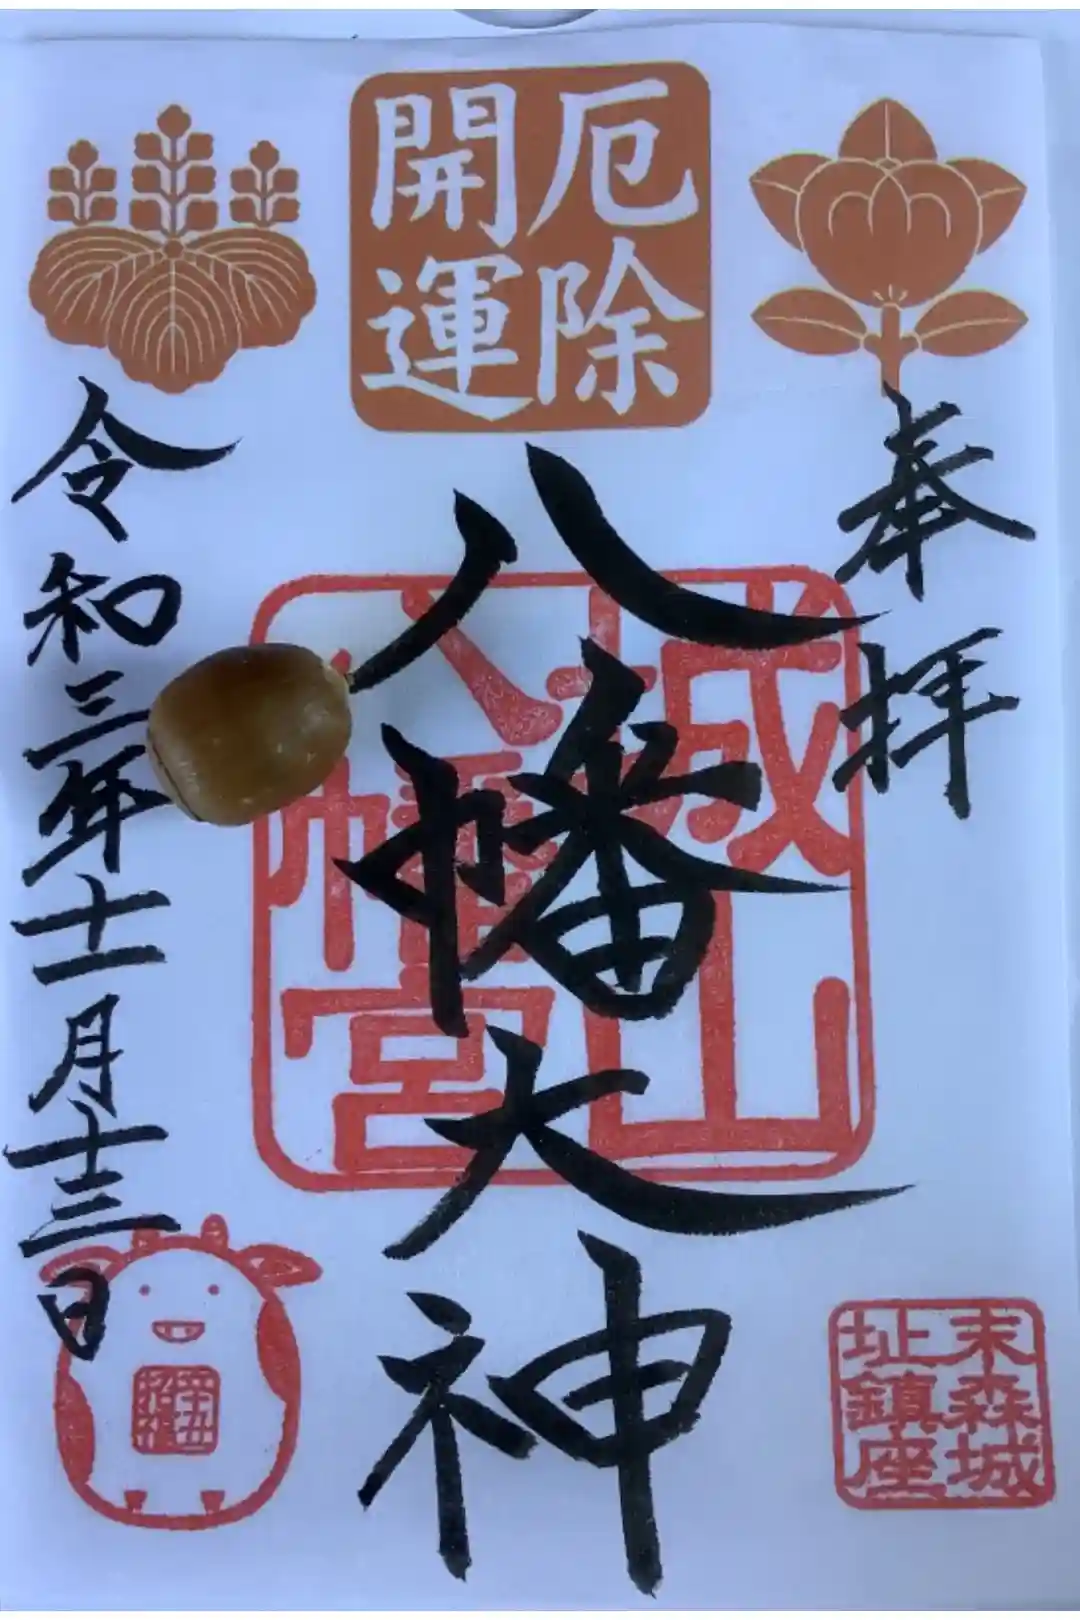 奉拝
厄除
開運
八幡大神
城山
八幡宮
令和三年十一月十三日
末森城
址鎮座
辛丑
招福